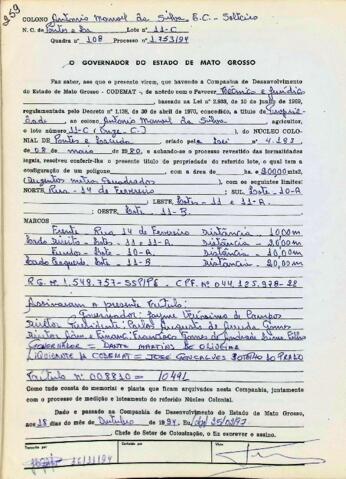 259
COLONO Antonio Manoel da Silva E.C. - Solteiro
N. C. de Pontes e La Lote n.º 11-C
Quadra n.º 108 Processo n.º 1.753/94
O GOVERNADOR DO ESTADO DE MATO GROSSO
Faz saber, aos que o presente virem, que havendo a Companhia de Desenvolvimento
do Estado de Mato Grosso - CODEMAT -, de acordo com o Parecer Técnico e Jurídico
baseado na Lei N.º 2.938, de 10 de junho de 1969,
regulamentada pelo Decreto N.º 1.138, de 30 de abril de 1970, concedido, a título de
dade ao colono Antonio Manoel da Silva agricultor,
o lote número 11-C (Onze-C) do NÚCLEO COLO-
NIAL DE Pontes e Lacerda criado pela Lei n.º 4.293
de 08 de maio de 1980, e achando-se o processo revestido das formalidades
legais, resolveu conferir-lhe o presente título de propriedade do referido lote, o qual tem a
configuração de um polígono com a área de ha. e 200,00 m2
(Duzentos metros quadrados) com os seguintes limites:
NORTE, Rua 14 de Fevereiro; SUL, Lote 10-A
; LESTE, Lotes 11 e 11-A
; OESTE, Lote 11-B.
MARCOS
Frente Rua 14 de Fevereiro Distância - 10,00m
Lado Direito - Lotes - 11 e 11-A. Distância - 20,00m
Fundos - Lote - 10-A Distância - 10,00m
Lado Esquerdo - Lote - 11-B Distância - 20,00m
R.G. nº 1.548.757-SSP/PE. CPF. nº 044.125.978-28
Assinaram o presente título:
Governador: Jayme Veríssimo de Campos
Diretor Presidente: Carlos Augusto de Arruda Gomes
GOVERNADOR = DANTE MARTINS DE OLIVEIRA
LIQUIDANTE DA CODEMAT = JOSÉ GONÇALVES BOTELHO DO PRADO
Título nº 008810 = 10491
Como tudo consta do memorial e planta que ficam arquivados nesta Companhia, juntamente
com o processo de medição e loteamento do referido Núcleo Colonial.
Dado e passado na Companhia de Desenvolvimento do Estado de Mato Grosso,
aos 28 dias do mês de Outubro de 1994. Eu
, Chefe do Setor de Colonização, o fiz escrever e assino.
Transcrito por
Conferido por
Visto